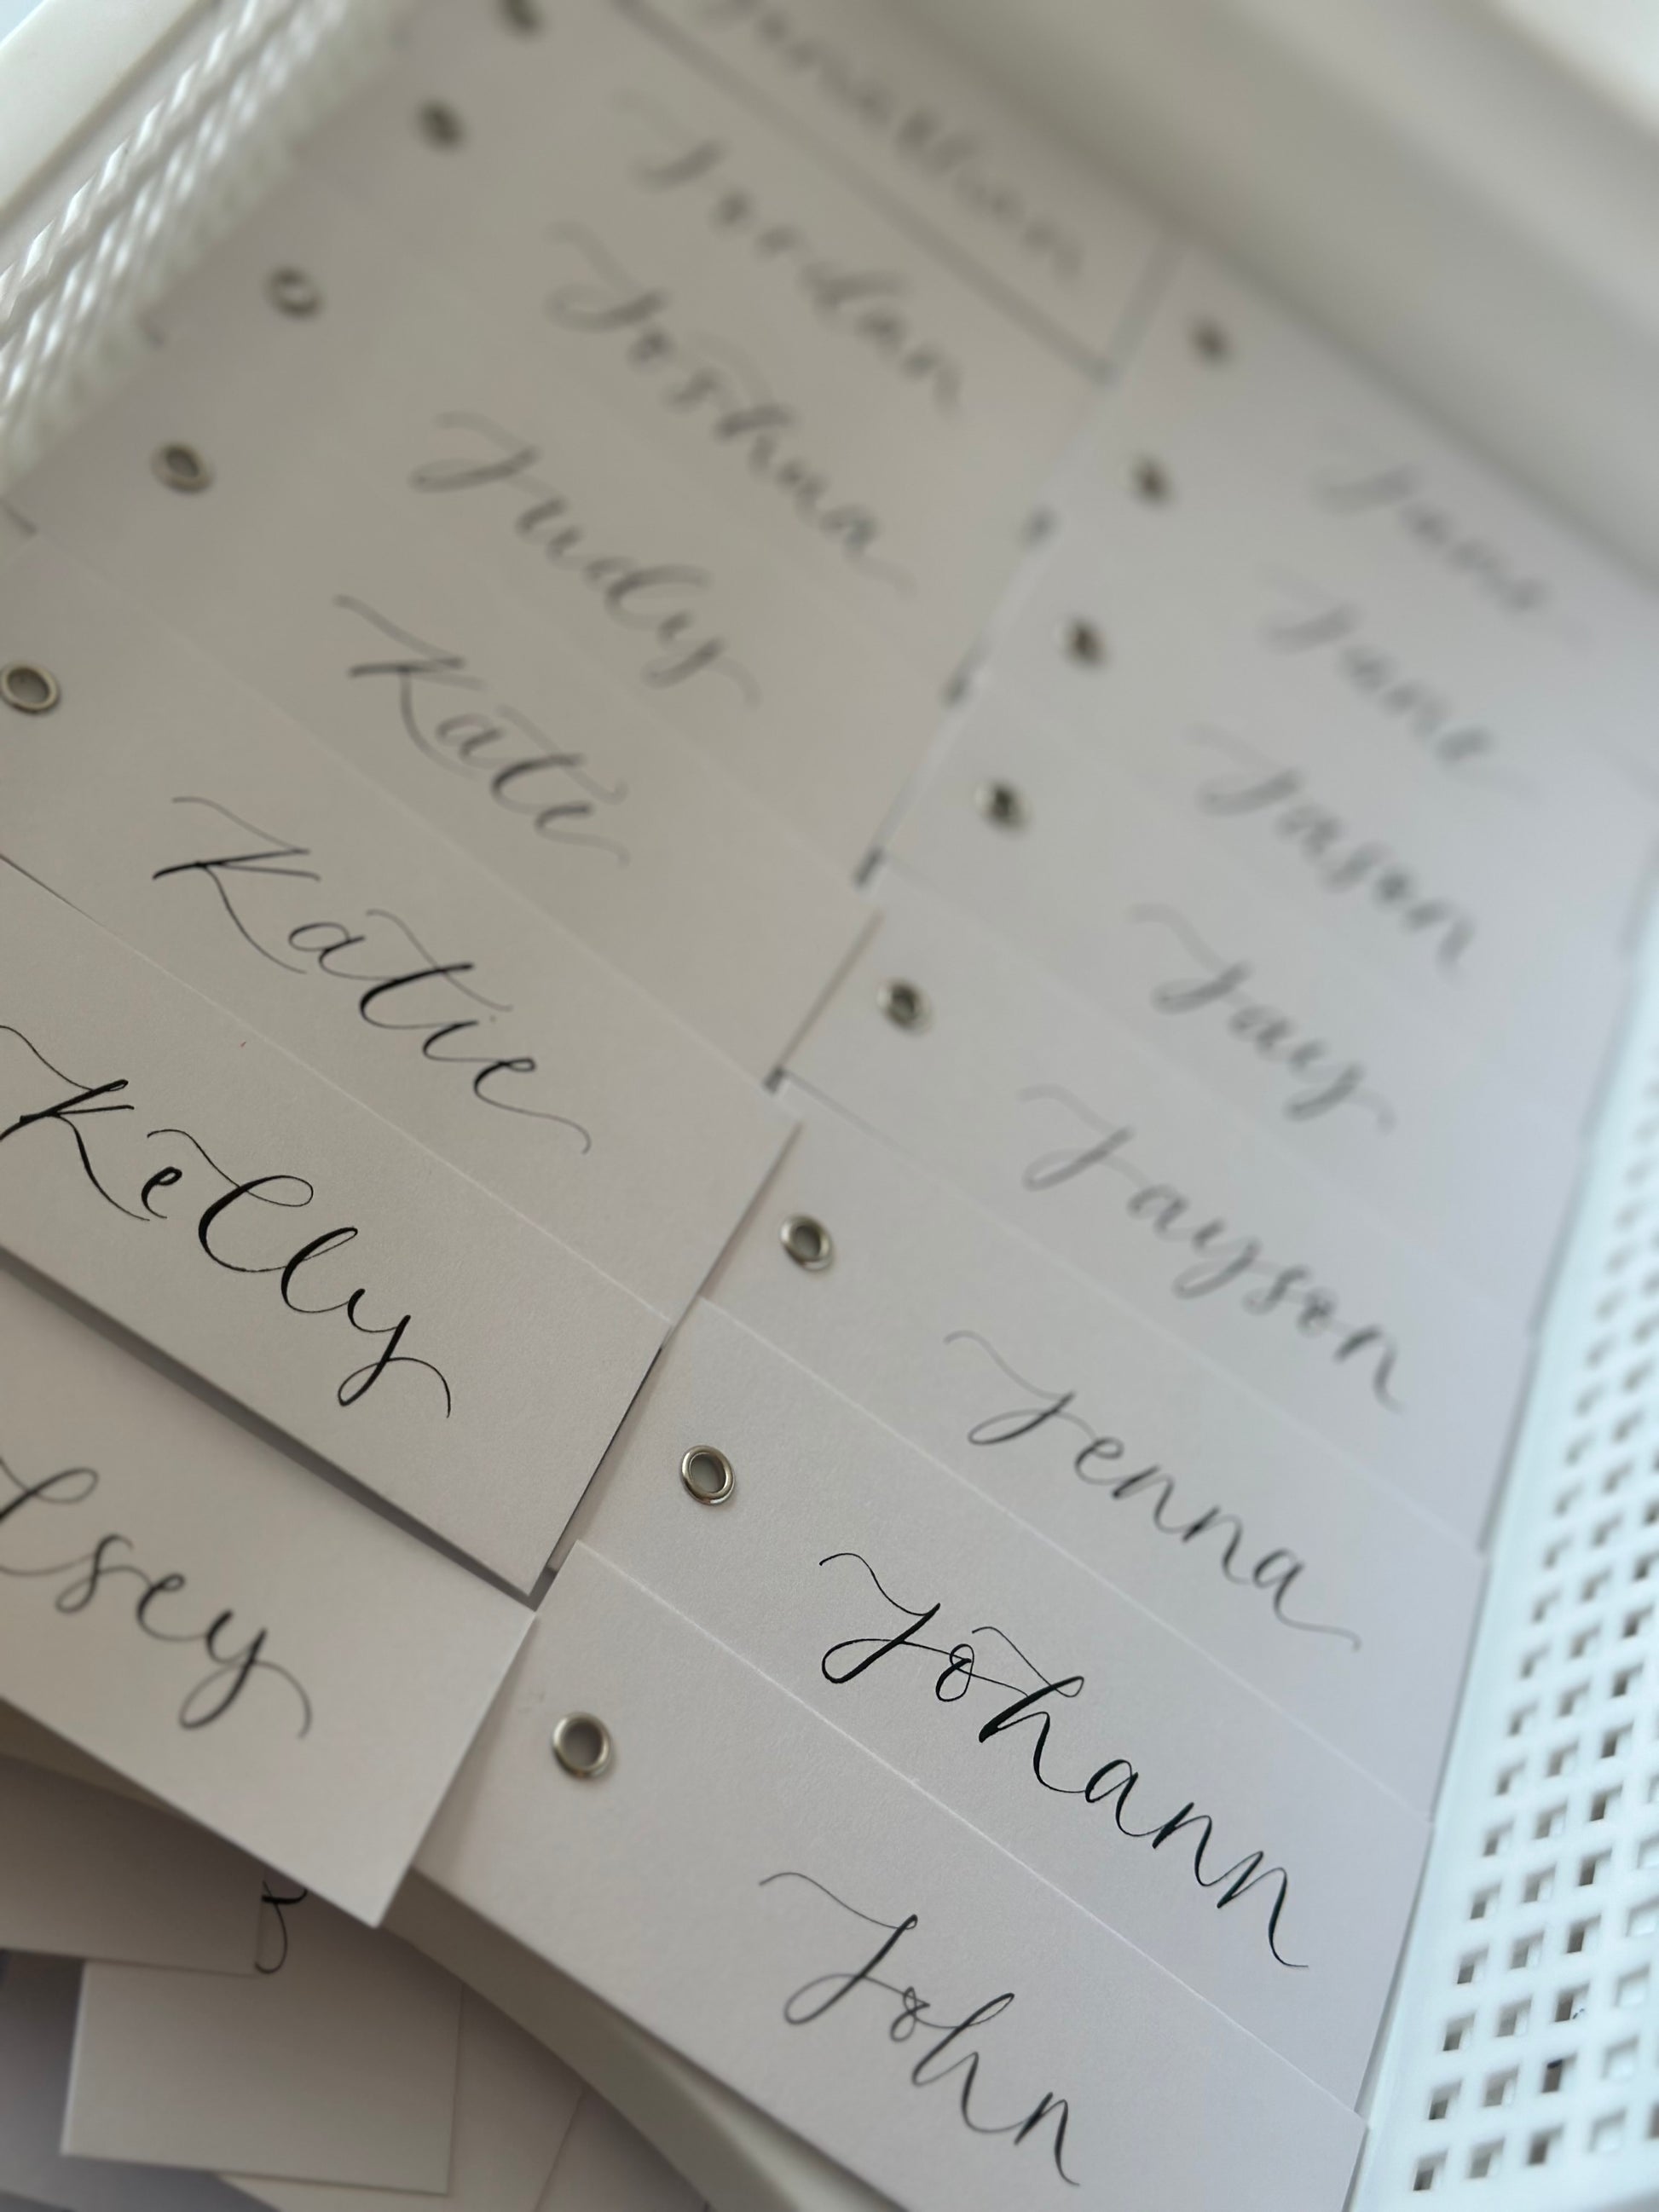 Jonathan
Jordan
Joshua
Judy
Kate
Katie
Kelly
lsey
Jane
Jason
Jay
Jayson
Jenna
Johann
John